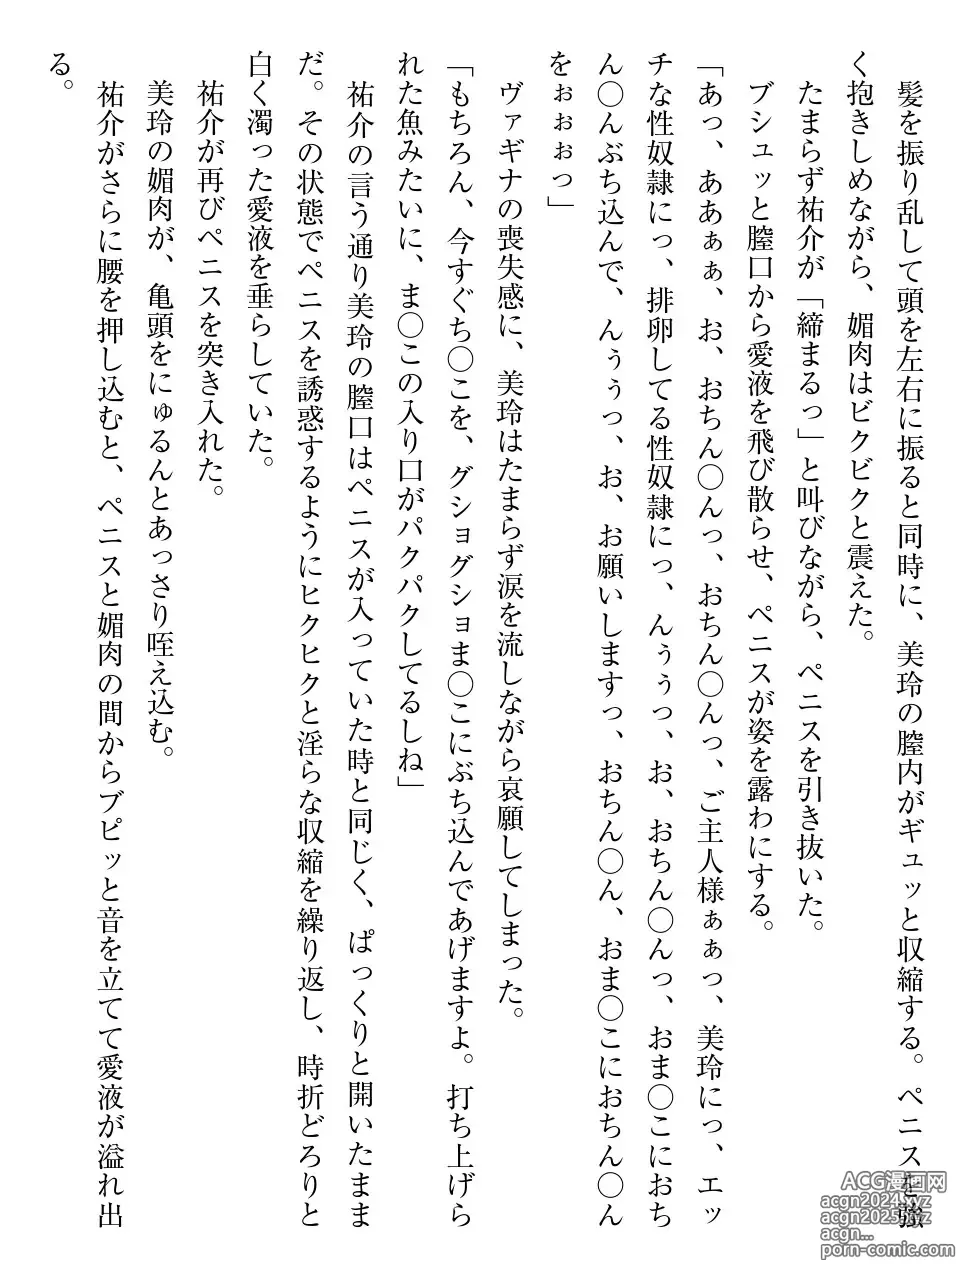 髪を振り乱して頭を左右に振ると同時に、美玲の膣内がギュッと収縮する。ペニスを強
く抱きしめながら、媚肉はビクビクと震えた。
たまらず祐介が「締まるっ」と叫びながら、ペニスを引き抜いた。
ブシュッと膣口から愛液を飛び散らせ、ペニスが姿を露わにする。
「あっ、ああぁぁ、お、おちん〇んっ、おちん〇んっ、ご主人様ぁぁっ、美玲にっ、エッ
チな性奴隷にっ、排卵してる性奴隷にっ、んぅぅっ、お、おちん〇んっ、おま〇こにおち
ん〇んぶち込んで、んぅぅっ、お、お願いしますっ、おちん〇ん、おま〇こにおちん〇ん
をぉぉぉっ」
ヴァギナの喪失感に、美玲はたまらず涙を流しながら哀願してしまった。
「もちろん、今すぐち〇こを、グショグショま〇こにぶち込んであげますよ。打ち上げら
れた魚みたいに、ま〇この入り口がパクパクしてるしね」
祐介の言う通り美玲の膣口はペニスが入っていた時と同じく、ぱっくりと開いたまま
だ。その状態でペニスを誘惑するようにヒクヒクと淫らな収縮を繰り返し、時折どろりと
白く濁った愛液を垂らしていた。
祐介が再びペニスを突き入れた。
美玲の媚肉が、亀頭をにゅるんとあっさり咥え込む。
祐介がさらに腰を押し込むと、ペニスと媚肉の間からブピッと音を立てて愛液が溢れ出
る。
ACG漫画网
acgn2024.xyz
acgn2025.xyz
acgn...
porn-comic.com